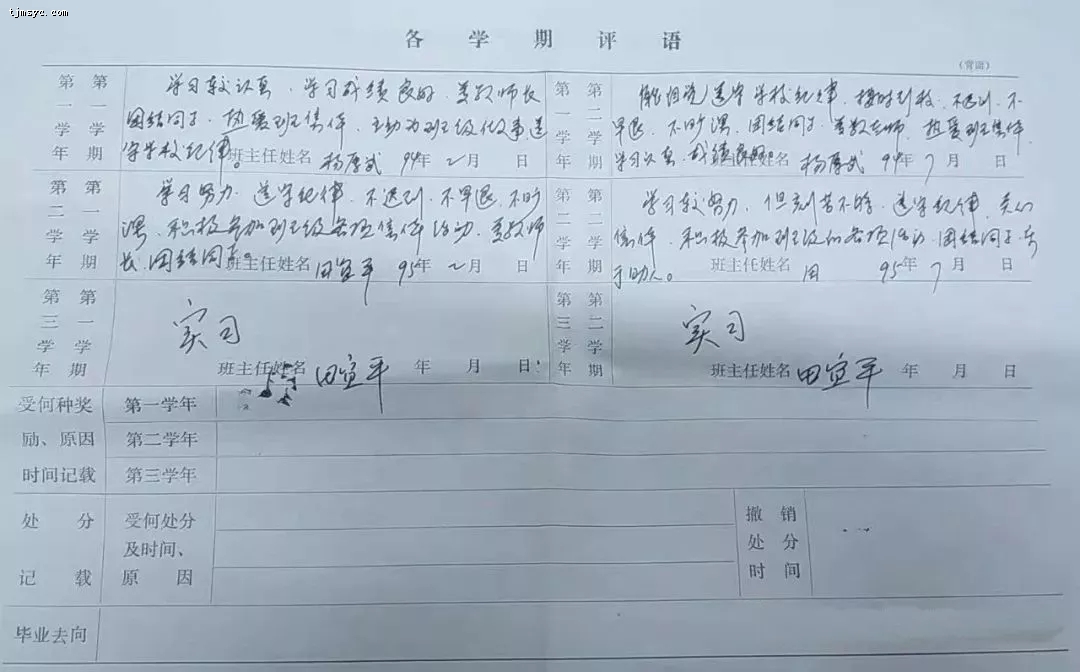 tjmsyc.com
各学期评语
(背面)
第一学年 第一学期
学习较认真、学习成绩良好、尊敬师长
团结同学、热爱班集体、主动为班级做事、遵
守学校纪律。
班主任姓名 杨厚武 94年 2月 日
第一学年 第二学期
能自觉遵守学校纪律、按时到校、不迟到、不
早退、不旷课、团结同学、尊敬老师、热爱班集体
学习认真、成绩良好。
班主任姓名 杨厚武 94年 7月 日
第二学年 第一学期
学习努力、遵守纪律、不迟到、不早退、不旷
课、积极参加班级各项集体活动、尊敬师
长、团结同学。
班主任姓名 田宜平 95年 2月 日
第二学年 第二学期
学习较努力、但刻苦不够、遵守纪律、关心
集体、积极参加班级的各项活动、团结同学、乐
于助人。
班主任姓名 田 95年 7月 日
第三学年 第一学期
实习
班主任姓名 田宜平 年 月 日
第三学年 第二学期
实习
班主任姓名 田宜平 年 月 日
受何种奖
励、原因
时间记载
第一学年
第二学年
第三学年
处分
记载
受何处分
及时间、
原因
撤销
处分
时间
毕业去向